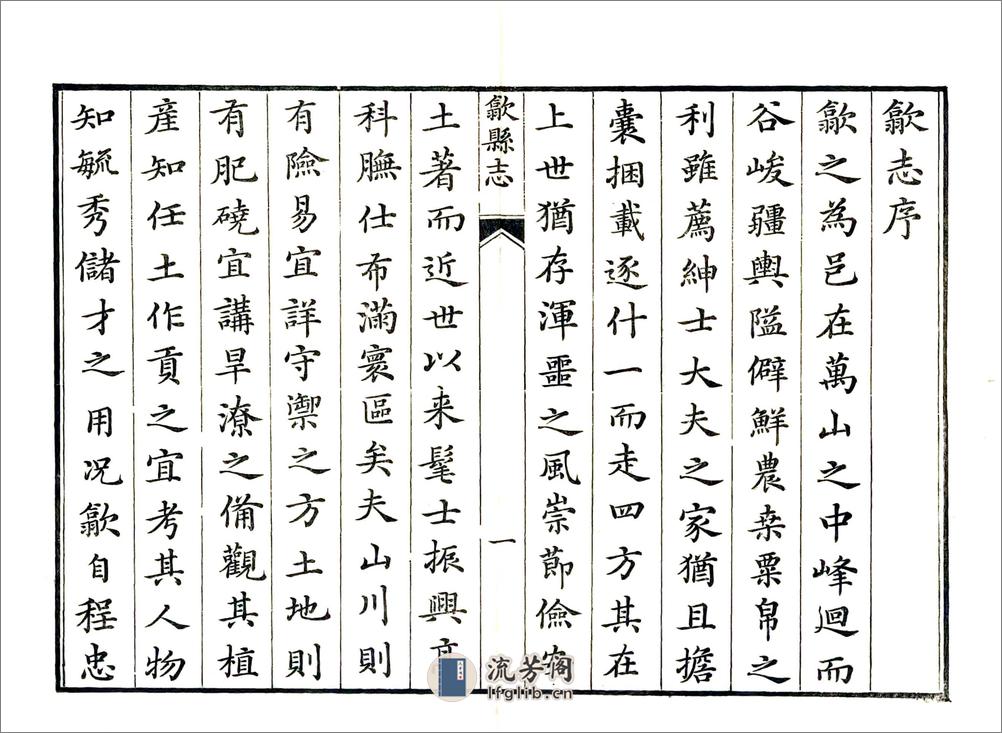 歙志序
歙之為邑在萬山之中峰迴而
谷峻疆輿隘僻鮮農桒粟帛之
利雖薦紳士大夫之家猶且擔
囊捆載逐什一而走四方其在
上世猶存渾噩之風崇節儉安
歙縣志
一
土著而近世以来髦士振興高
科膴仕布滿寰區矣夫山川則
有險易宜詳守禦之方土地則
有肥磽宜講旱潦之俻觀其植
産知任土作貢之宜考其人物
知毓秀儲才之用况歙自程忠
流芳阁
lfglib.cn